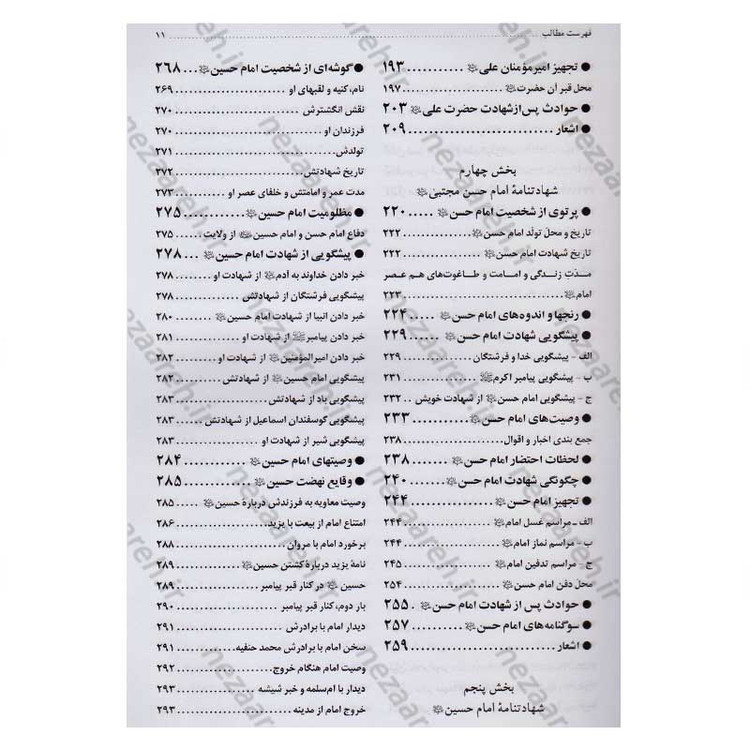 فهرست مطالب ........ ۱۱
● تجهیز امیرمؤمنان علی ........ ۱۹۳
محل قبر آن حضرت ........ ۱۹۷
● حوادث پس از شهادت حضرت علی ........ ۲۰۳
● اشعار ........ ۲۰۹
بخش چهارم
شهادتنامهٔ امام حسن مجتبی
● پرتوی از شخصیت امام حسن ........ ۲۲۰
تاریخ و محل تولّد امام حسن ........ ۲۲۲
تاریخ شهادت امام حسن ........ ۲۲۲
مدّتِ زندگی و امامت و طاغوت‌های هم عصر
امام ........ ۲۲۳
● رنجها و اندوه‌های امام حسن ........ ۲۲۴
● پیشگویی شهادت امام حسن ........ ۲۲۹
الف - پیشگویی خدا و فرشتگان ........ ۲۲۹
ب - پیشگویی پیامبر اکرم ........ ۲۳۱
ج - پیشگویی امام حسن از شهادت خویش ........ ۲۳۲
● وصیت‌های امام حسن ........ ۲۳۳
جمع بندی اخبار و اقوال ........ ۲۳۸
● لحظات احتضار امام حسن ........ ۲۳۸
● چگونگی شهادت امام حسن ........ ۲۴۰
● تجهیز امام حسن ........ ۲۴۴
الف - مراسم غسل امام ........ ۲۴۴
ب - مراسم نماز امام ........ ۲۴۴
ج - مراسم تدفین امام ........ ۲۴۵
محل دفن امام حسن ........ ۲۵۴
● حوادث پس از شهادت امام حسن ........ ۲۵۵
● سوگنامه‌های امام حسن ........ ۲۵۷
● اشعار ........ ۲۵۹
بخش پنجم
شهادتنامهٔ امام حسین
● گوشه‌ای از شخصیت امام حسین ........ ۲۶۸
نام، کنیه و لقبهای او ........ ۲۶۹
نقش انگشترش ........ ۲۷۰
فرزندان او ........ ۲۷۰
تولدش ........ ۲۷۱
تاریخ شهادتش ........ ۲۷۲
مدت عمر و امامتش و خلفای عصر او ........ ۲۷۳
● مظلومیت امام حسین ........ ۲۷۵
دفاع امام حسن و امام حسین از ولایت ........ ۲۷۵
● پیشگویی از شهادت امام حسین ........ ۲۷۸
خبر دادن خداوند به آدم از شهادت او ........ ۲۷۸
پیشگویی فرشتگان از شهادتش ........ ۲۷۸
خبر دادن انبیا از شهادت امام حسین ........ ۲۸۰
خبر دادن پیامبر از شهادت او ........ ۲۸۱
خبر دادن امیرالمؤمنین از شهادت او ........ ۲۸۲
پیشگویی امام حسین از شهادتش ........ ۲۸۲
پیشگویی باد از شهادتش ........ ۲۸۳
پیشگویی گوسفندان اسماعیل از شهادتش ........ ۲۸۳
پیشگویی شیر از شهادت او ........ ۲۸۳
● وصیتهای امام حسین ........ ۲۸۴
● وقایع نهضت حسین ........ ۲۸۵
وصیت معاویه به فرزندش دربارهٔ حسین ........ ۲۸۵
امتناع امام از بیعت با یزید ........ ۲۸۶
برخورد امام با مروان ........ ۲۸۸
نامهٔ یزید دربارهٔ کشتن حسین ........ ۲۸۹
حسین در کنار قبر پیامبر ........ ۲۸۹
بار دوم، کنار قبر پیامبر ........ ۲۹۰
دیدار امام با برادرش ........ ۲۹۱
سخن امام با برادرش محمد حنفیه ........ ۲۹۱
وصیت امام هنگام خروج ........ ۲۹۲
دیدار با ام‌سلمه و خبر شیشه ........ ۲۹۳
خروج امام از مدینه ........ ۲۹۳
nezaareh.ir